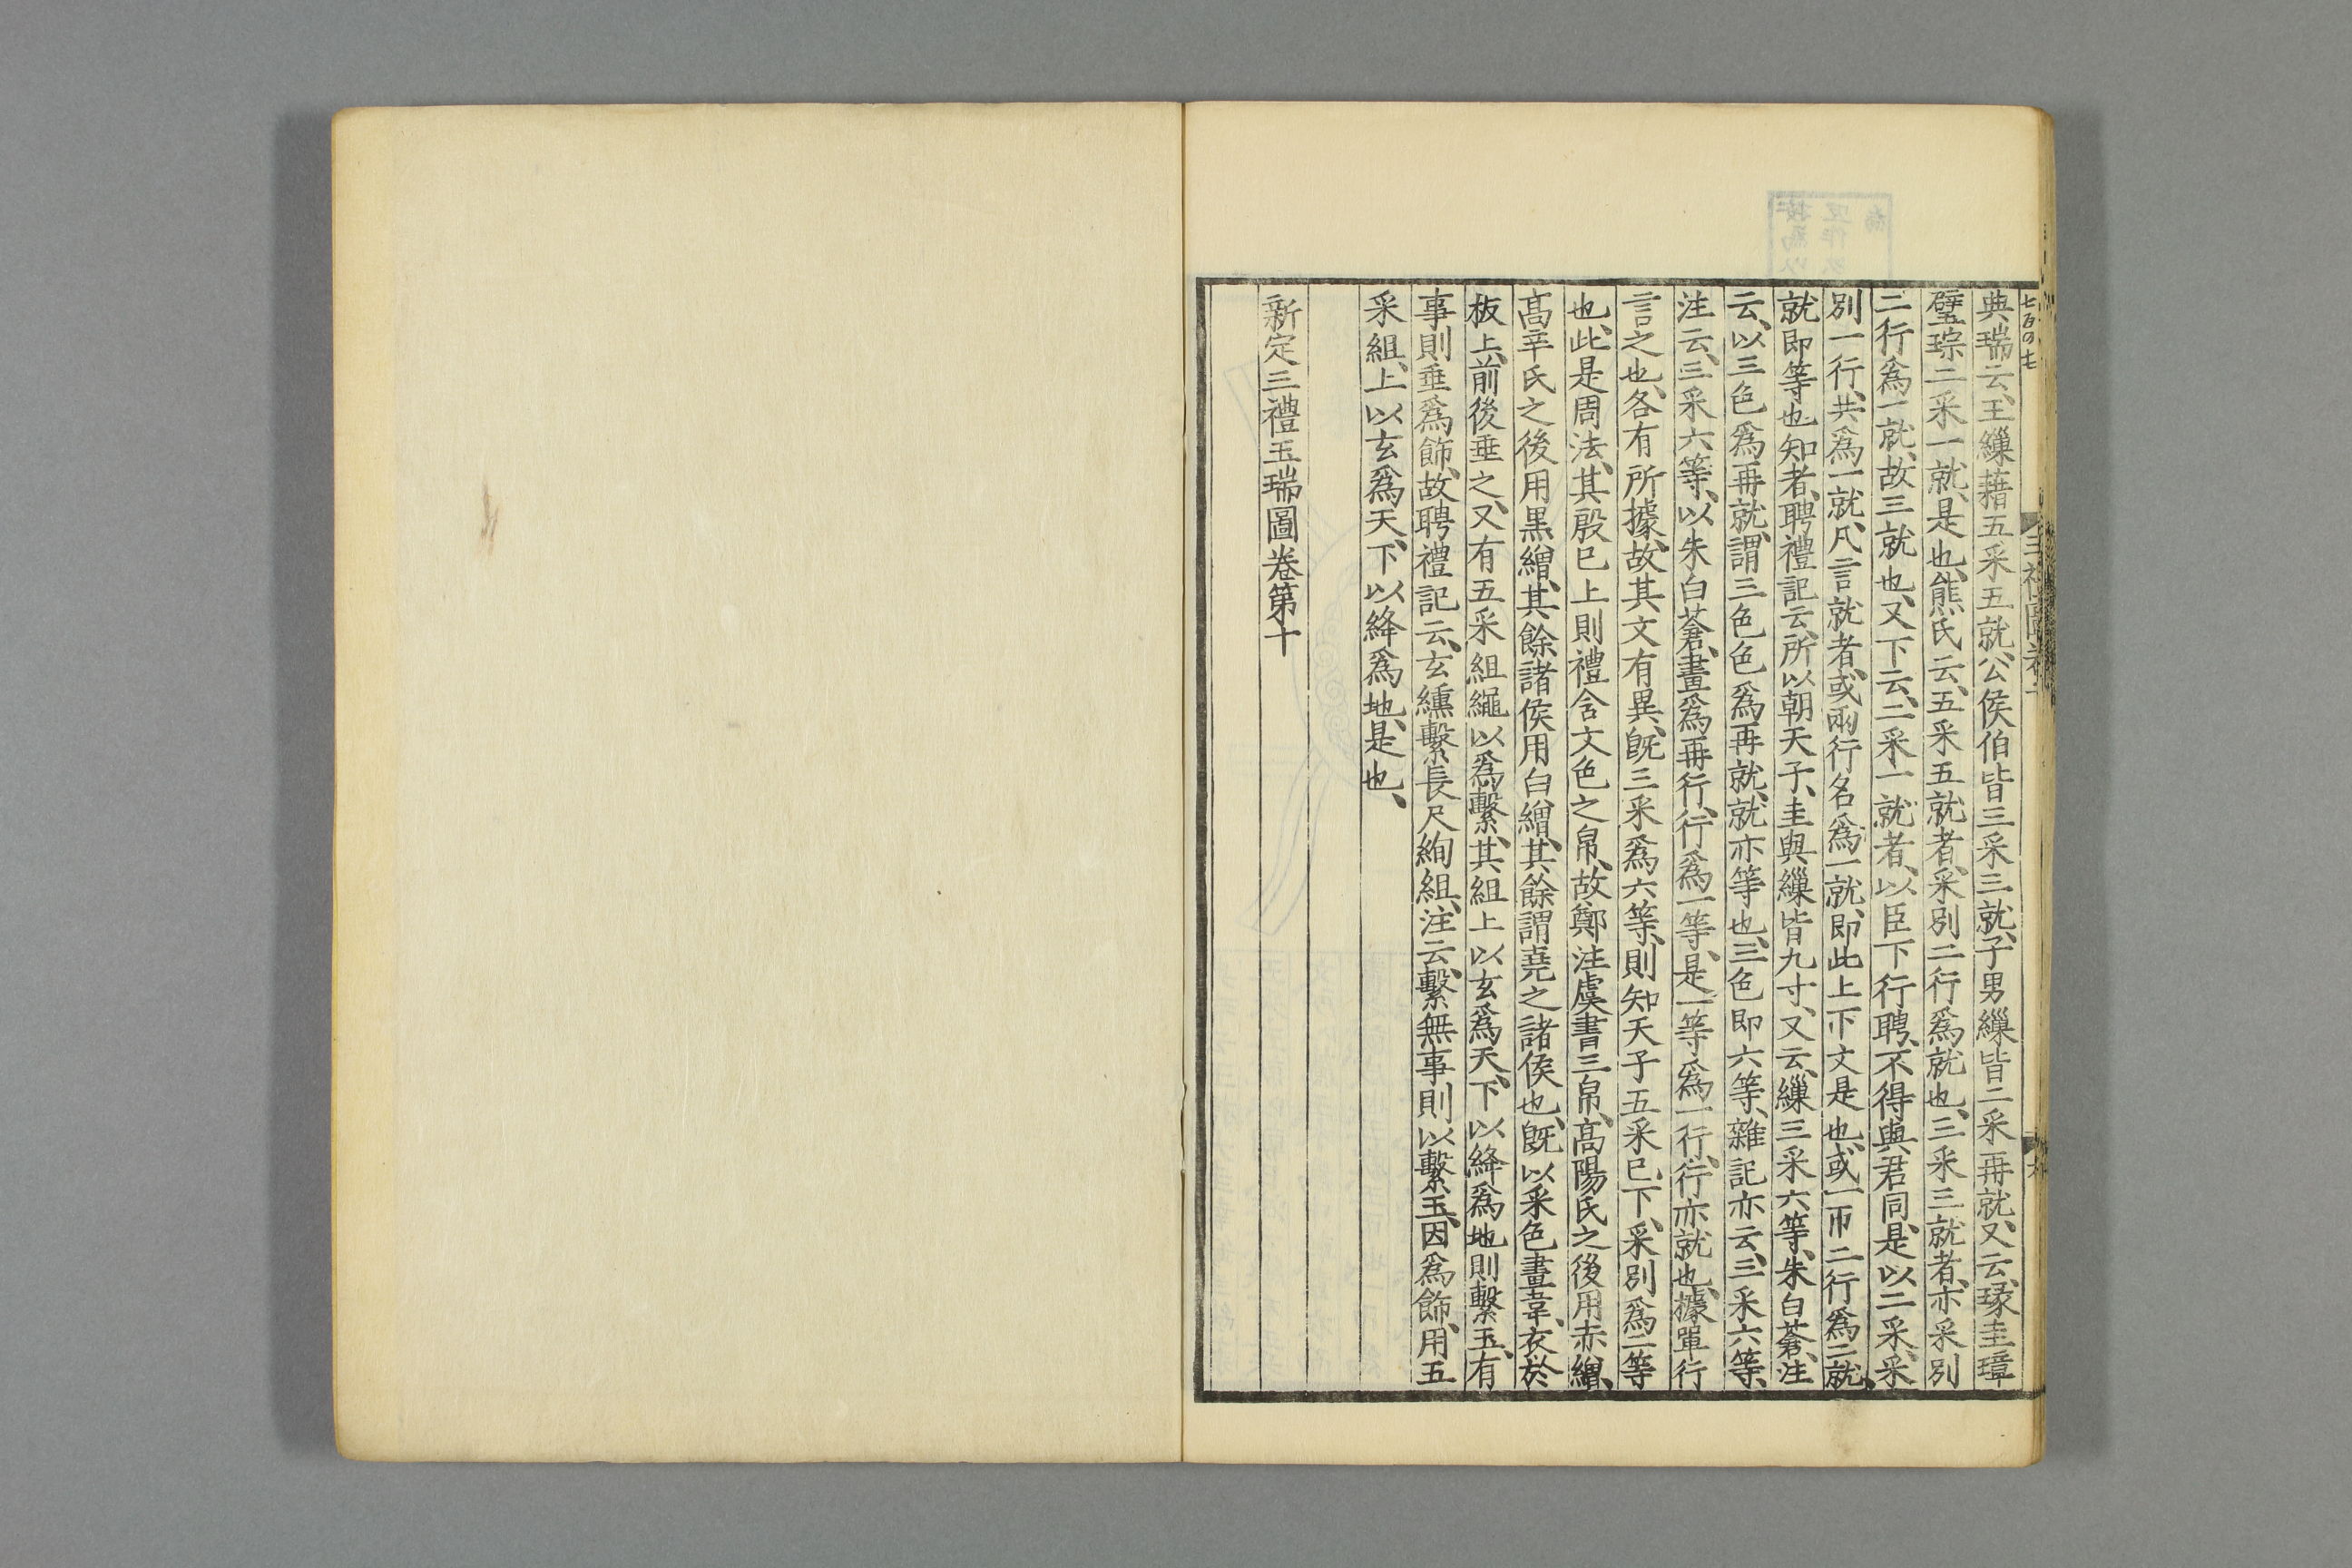 典瑞云、王繅藉五采五就、公侯伯皆三采三就、子男繅皆二采再就、又云、瑑圭璋
璧琮二采一就、是也、熊氏云、五采五就者、采別二行爲就也、三采三就者、亦采別
二行爲一就、故三就也、又下云、二采一就者、以臣下行聘、不得與君同、是以二采、采
別一行、共爲一就、凡言就者、或兩行名爲一就、即此上下文是也、或一帀二行爲二就、
就即等也、知者、聘禮記云、所以朝天子、圭與繅皆九寸、又云、繅三采六等、朱白蒼、注
云、以三色爲再就、謂三色色爲再就、就亦等也、三色即六等、雜記亦云、三采六等、
注云、三采六等、以朱白蒼、畫爲再行、行爲一等、是一等爲一行、行亦就也、據單行
言之也、各有所據、故其文有異、旣三采爲六等、則知天子五采已下、采別爲二等
也、此是周法、其殷已上則禮含文色之帛、故鄭注虞書三帛、髙陽氏之後用赤繒、
髙辛氏之後用黒繒、其餘諸侯用白繒、其餘謂堯之諸侯也、旣以采色畫韋、衣於
板上、前後垂之、又有五采組繩以爲繫、其組上以玄爲天、下以絳爲地則繫玉、有
事則垂爲飾、故聘禮記云、玄纁繫長尺絢組、注云、繫無事則以繫玉、因爲飾、用五
采組、上以玄爲天、下以絳爲地、是也、
新定三禮玉瑞圖卷第十